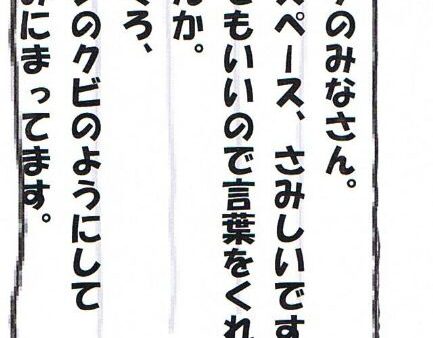 のみなさん。
ペース、さみしいです
もいいので言葉をくれ
か。
ろ、
のクビのようにして
にまってます。